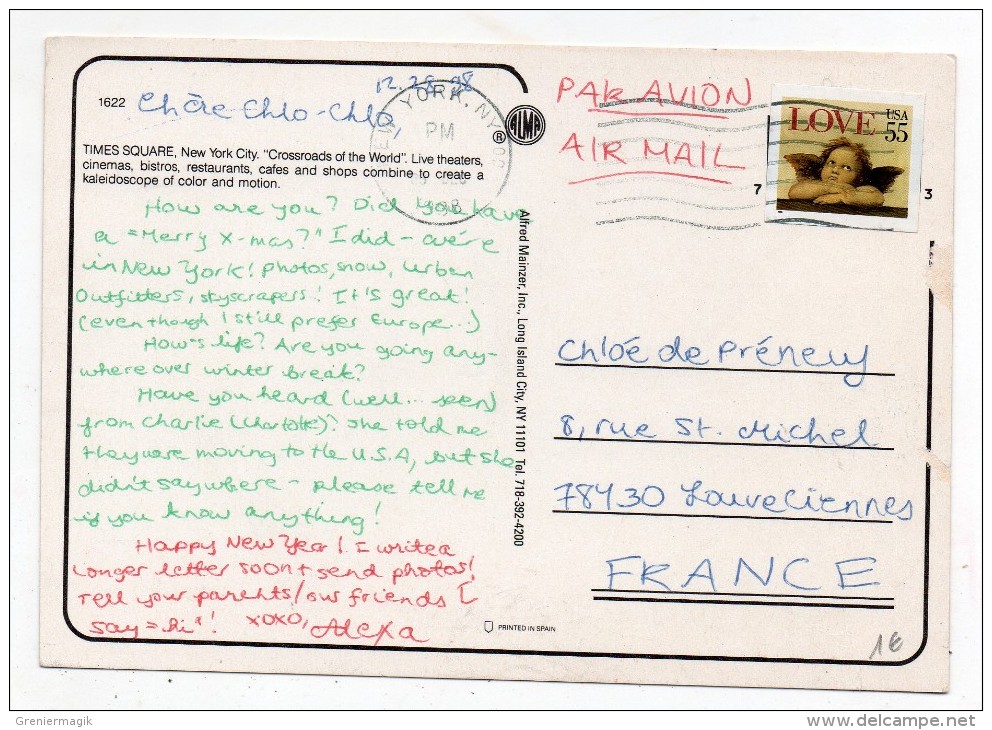 12.28.98
1622 Chère Chlo-Chlo,
TIMES SQUARE, New York City. "Crossroads of the World". Live theaters,
cinemas, bistros, restaurants, cafes and shops combine to create a
kaleidoscope of color and motion.
How are you? Did you have
a "Merry X-mas?" I did - we're
in New York! Photos, snow, Urban
Outfitters, skyscrapers! It's great!
(even though I still prefer Europe...)
How's life? Are you going any-
where over winter break?
Have you heard (well... seen)
from Charlie (Charlotte)? She told me
they were moving to the U.S.A, but she
didn't say where - please tell me
if you know anything!
Happy New Year! I write a
longer letter soon + send photos!
Tell your parents/our friends I
say "hi"! xoxo, Alexa
YORK, NY
PM
1998
ALMA
®
Alfred Mainzer, Inc., Long Island City, NY 11101 Tel. 718-392-4200
PRINTED IN SPAIN
PAR AVION
AIR MAIL
LOVE USA
55
7
3
Chloé de Préneuy
8, rue St. Michel
78430 Louveciennes
FRANCE
1€
Greniermagik
www.delcampe.net